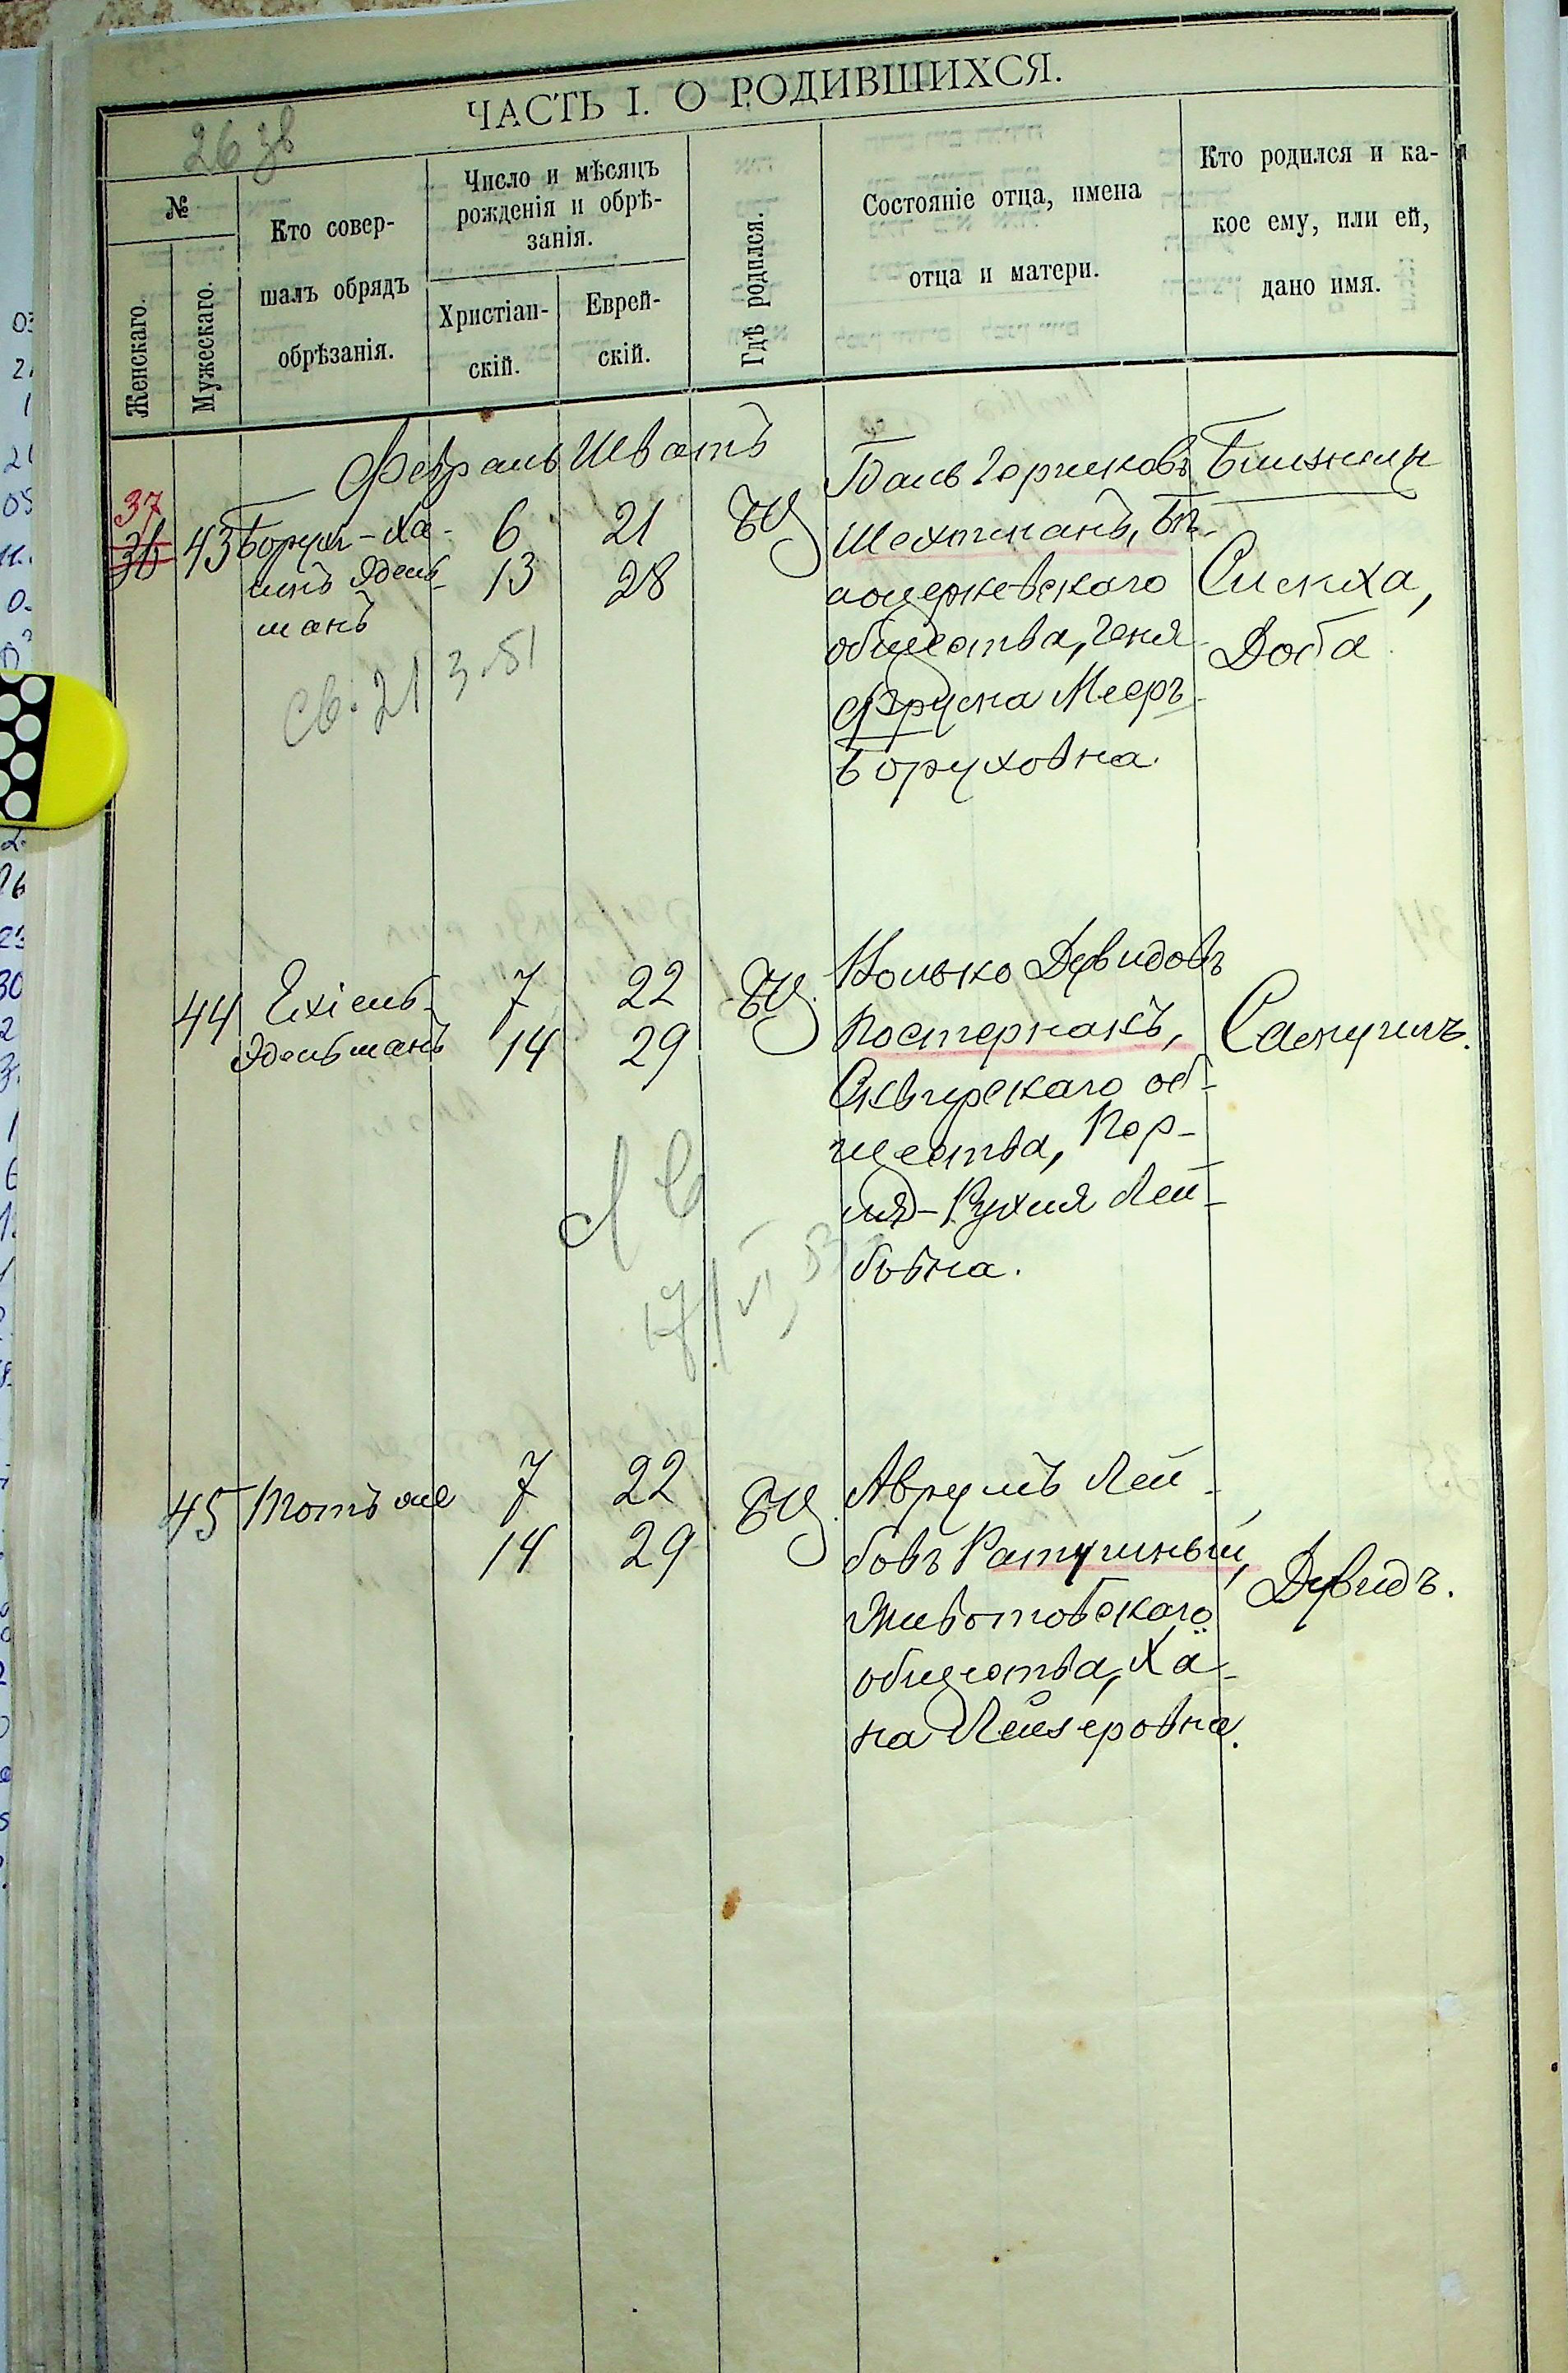 ЧАСТЬ I. О РОДИВШИХСЯ.
26 зв
№
Женскаго.
Мужескаго.
Кто совер-
шалъ обрядъ
обрѣзанія.
Число и мѣсяцъ
рожденія и обрѣ-
занія.
Христіан-
скій.
Еврей-
скій.
Гдѣ родился.
Состояніе отца, имена
отца и матери.
Кто родился и ка-
кое ему, или ей,
дано имя.
Февраль Шватъ
37
36
43
Борухъ-Ха-
имъ Эдель-
манъ
6
13
21
28
БЦ
Шехтманъ, Бѣ-
лоцерковскаго
общества, Геня
Фрума Мееръ-
Боруховна.
Близнецы
Симха,
Доба
Св. 21 3.51
44
Ехіель
Эдельманъ
7
14
22
29
БЦ.
Волько Дувидовъ
Постернакъ,
Сквирскаго об-
щества, Пер-
ля-Рухля Лей-
бовна.
Самуилъ.
45
Тотъ же
7
14
22
29
БЦ.
Аврумъ Лей-
бовъ Ратушный,
Животовскаго
общества, Ха-
на Лейзеровна.
Дувидъ.